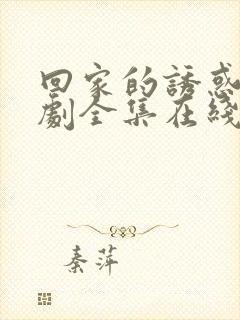 回家的誘惑
劇全集在綫
秦萍